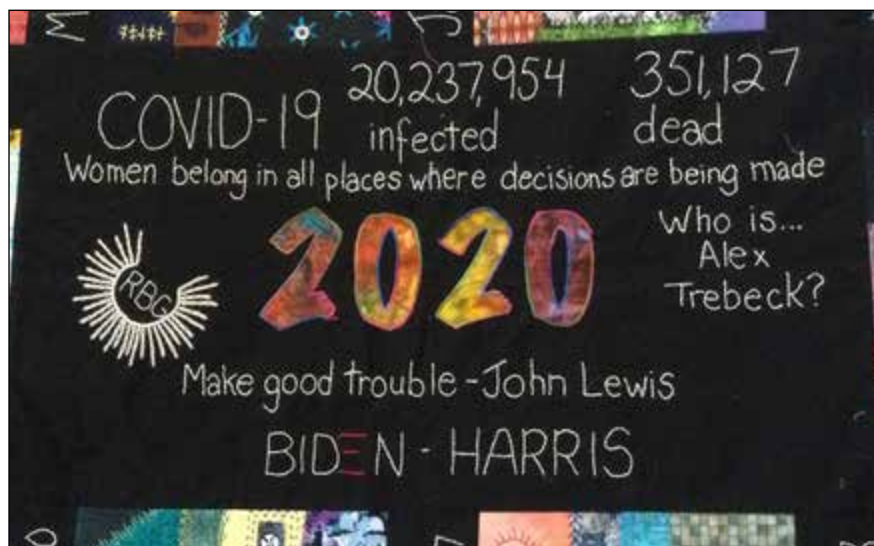 COVID-19
20,237,954
infected
351,127
dead
Women belong in all places where decisions are being made
RBG
2020
Who is...
Alex
Trebeck?
Make good trouble - John Lewis
BIDEN - HARRIS